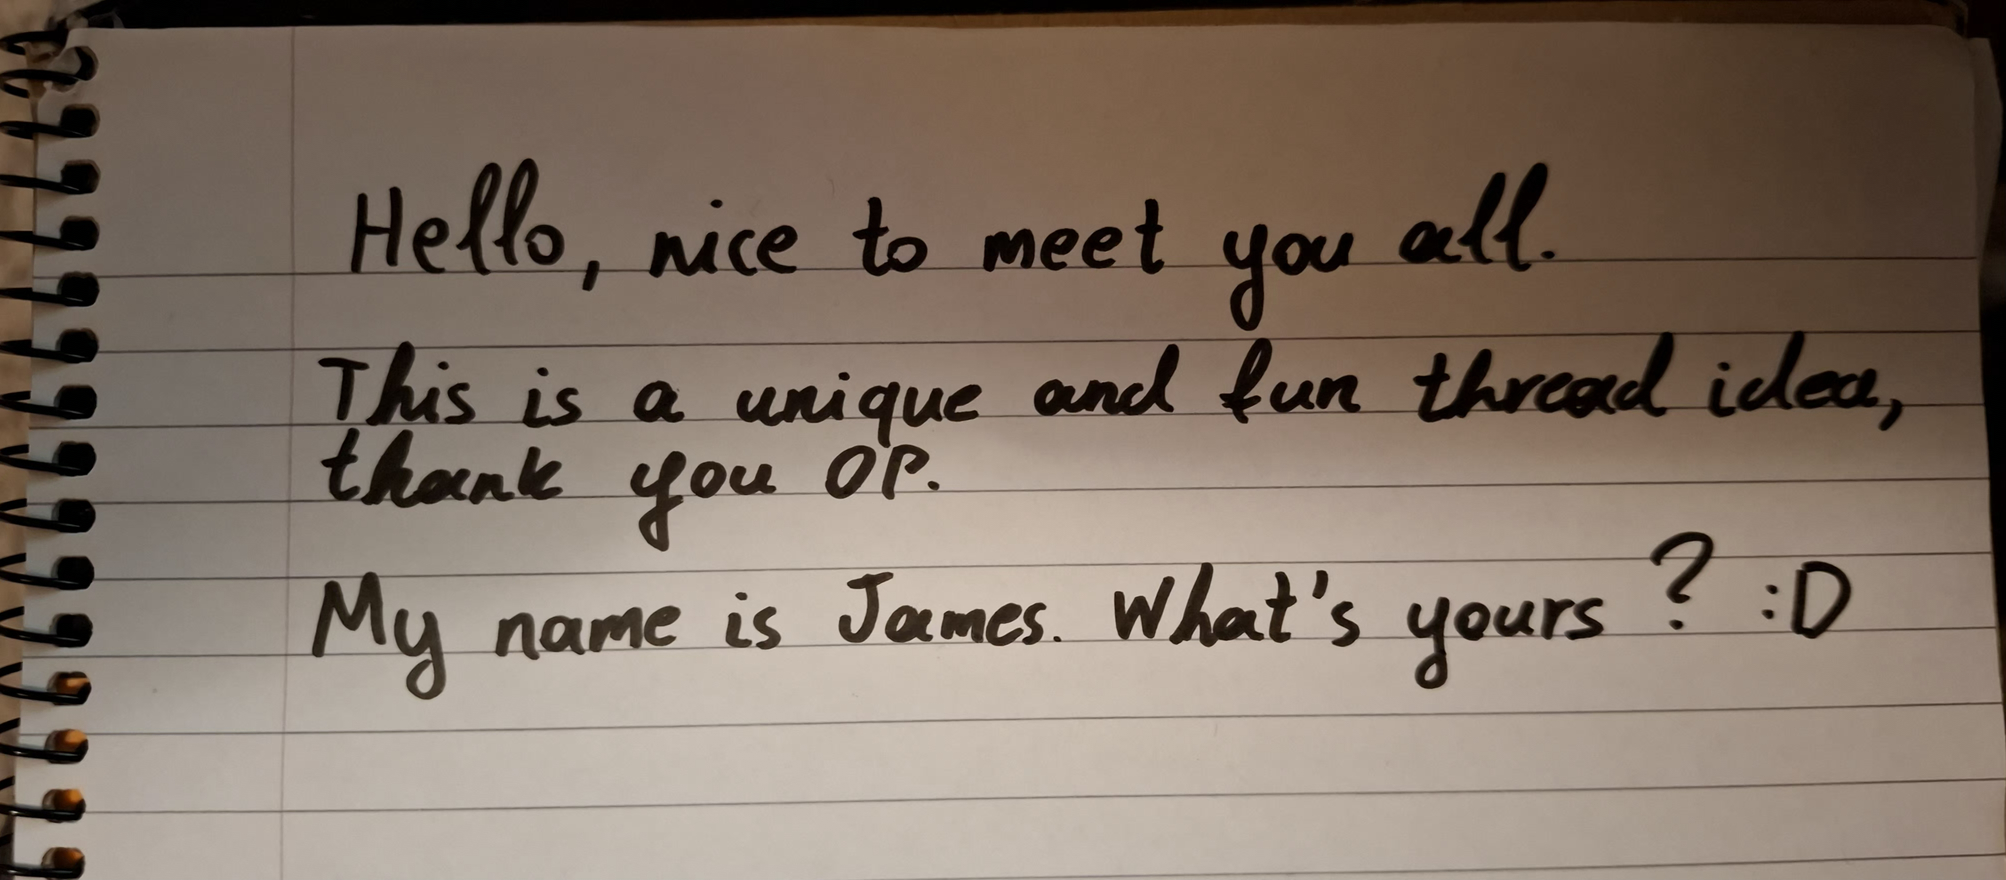 Hello, nice to meet you all.
This is a unique and fun thread idea,
thank you OP.
My name is James. What's yours ? :D